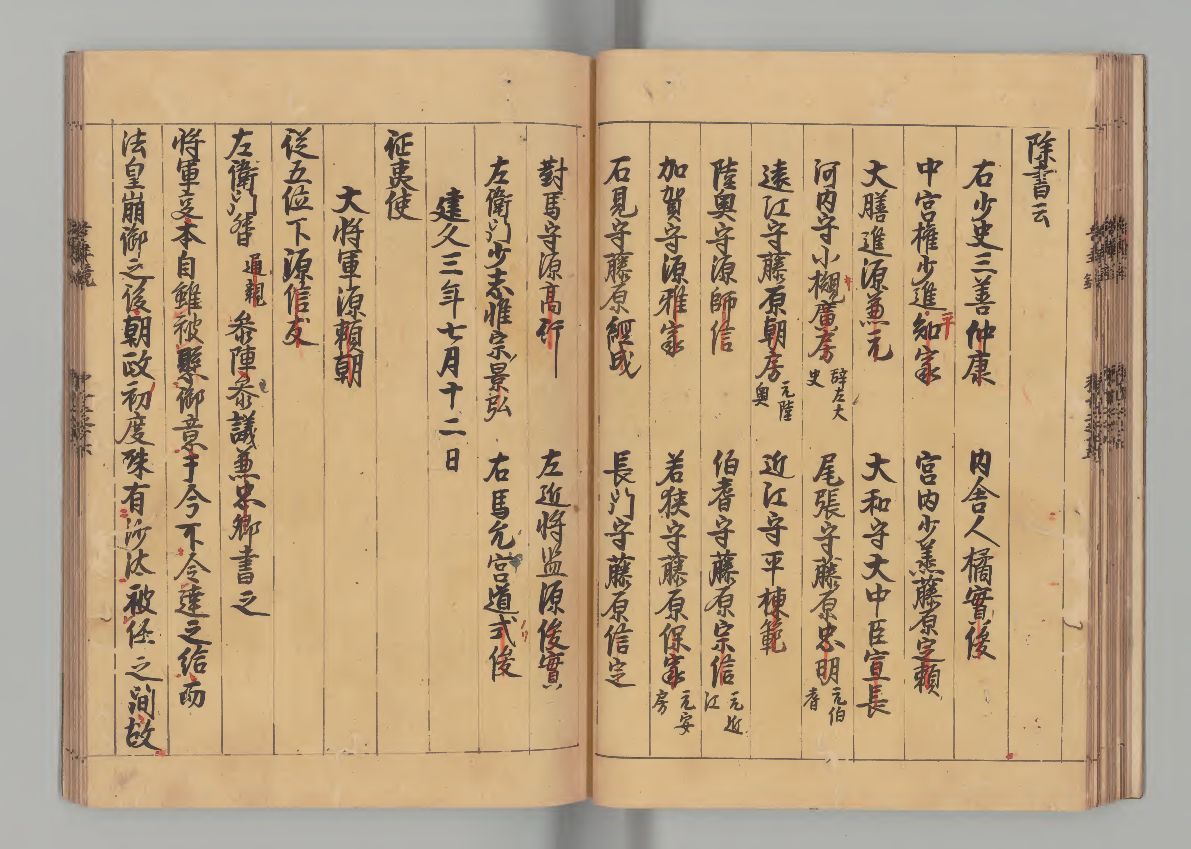 除書云
右少史三善仲康　内舎人橘實俊
中宮権少進平知家　宮内少丞藤原定頼
大膳進源兼元　大和守大中臣宣長
河内守小槻廣房辞左大史　尾張守藤原忠明元伯耆
遠江守藤原朝房元陸奥　近江守平棟範
陸奥守源師信　伯耆守藤原宗信元近江
加賀守源雅家　若狭守藤原保家元安房
石見守藤原經成　長門守藤原信定
對馬守源高行　左近将監源俊實
左衛門少志惟宗景弘　右馬允宮道式俊
建久三年七月十二日
征夷使
大将軍源頼朝
従五位下源信友
左衛門督通親参陣参議兼忠卿書之
将軍事本自雖被懸御意于今不令達之給而
法皇崩御之後朝政初度殊有沙汰被任之間故